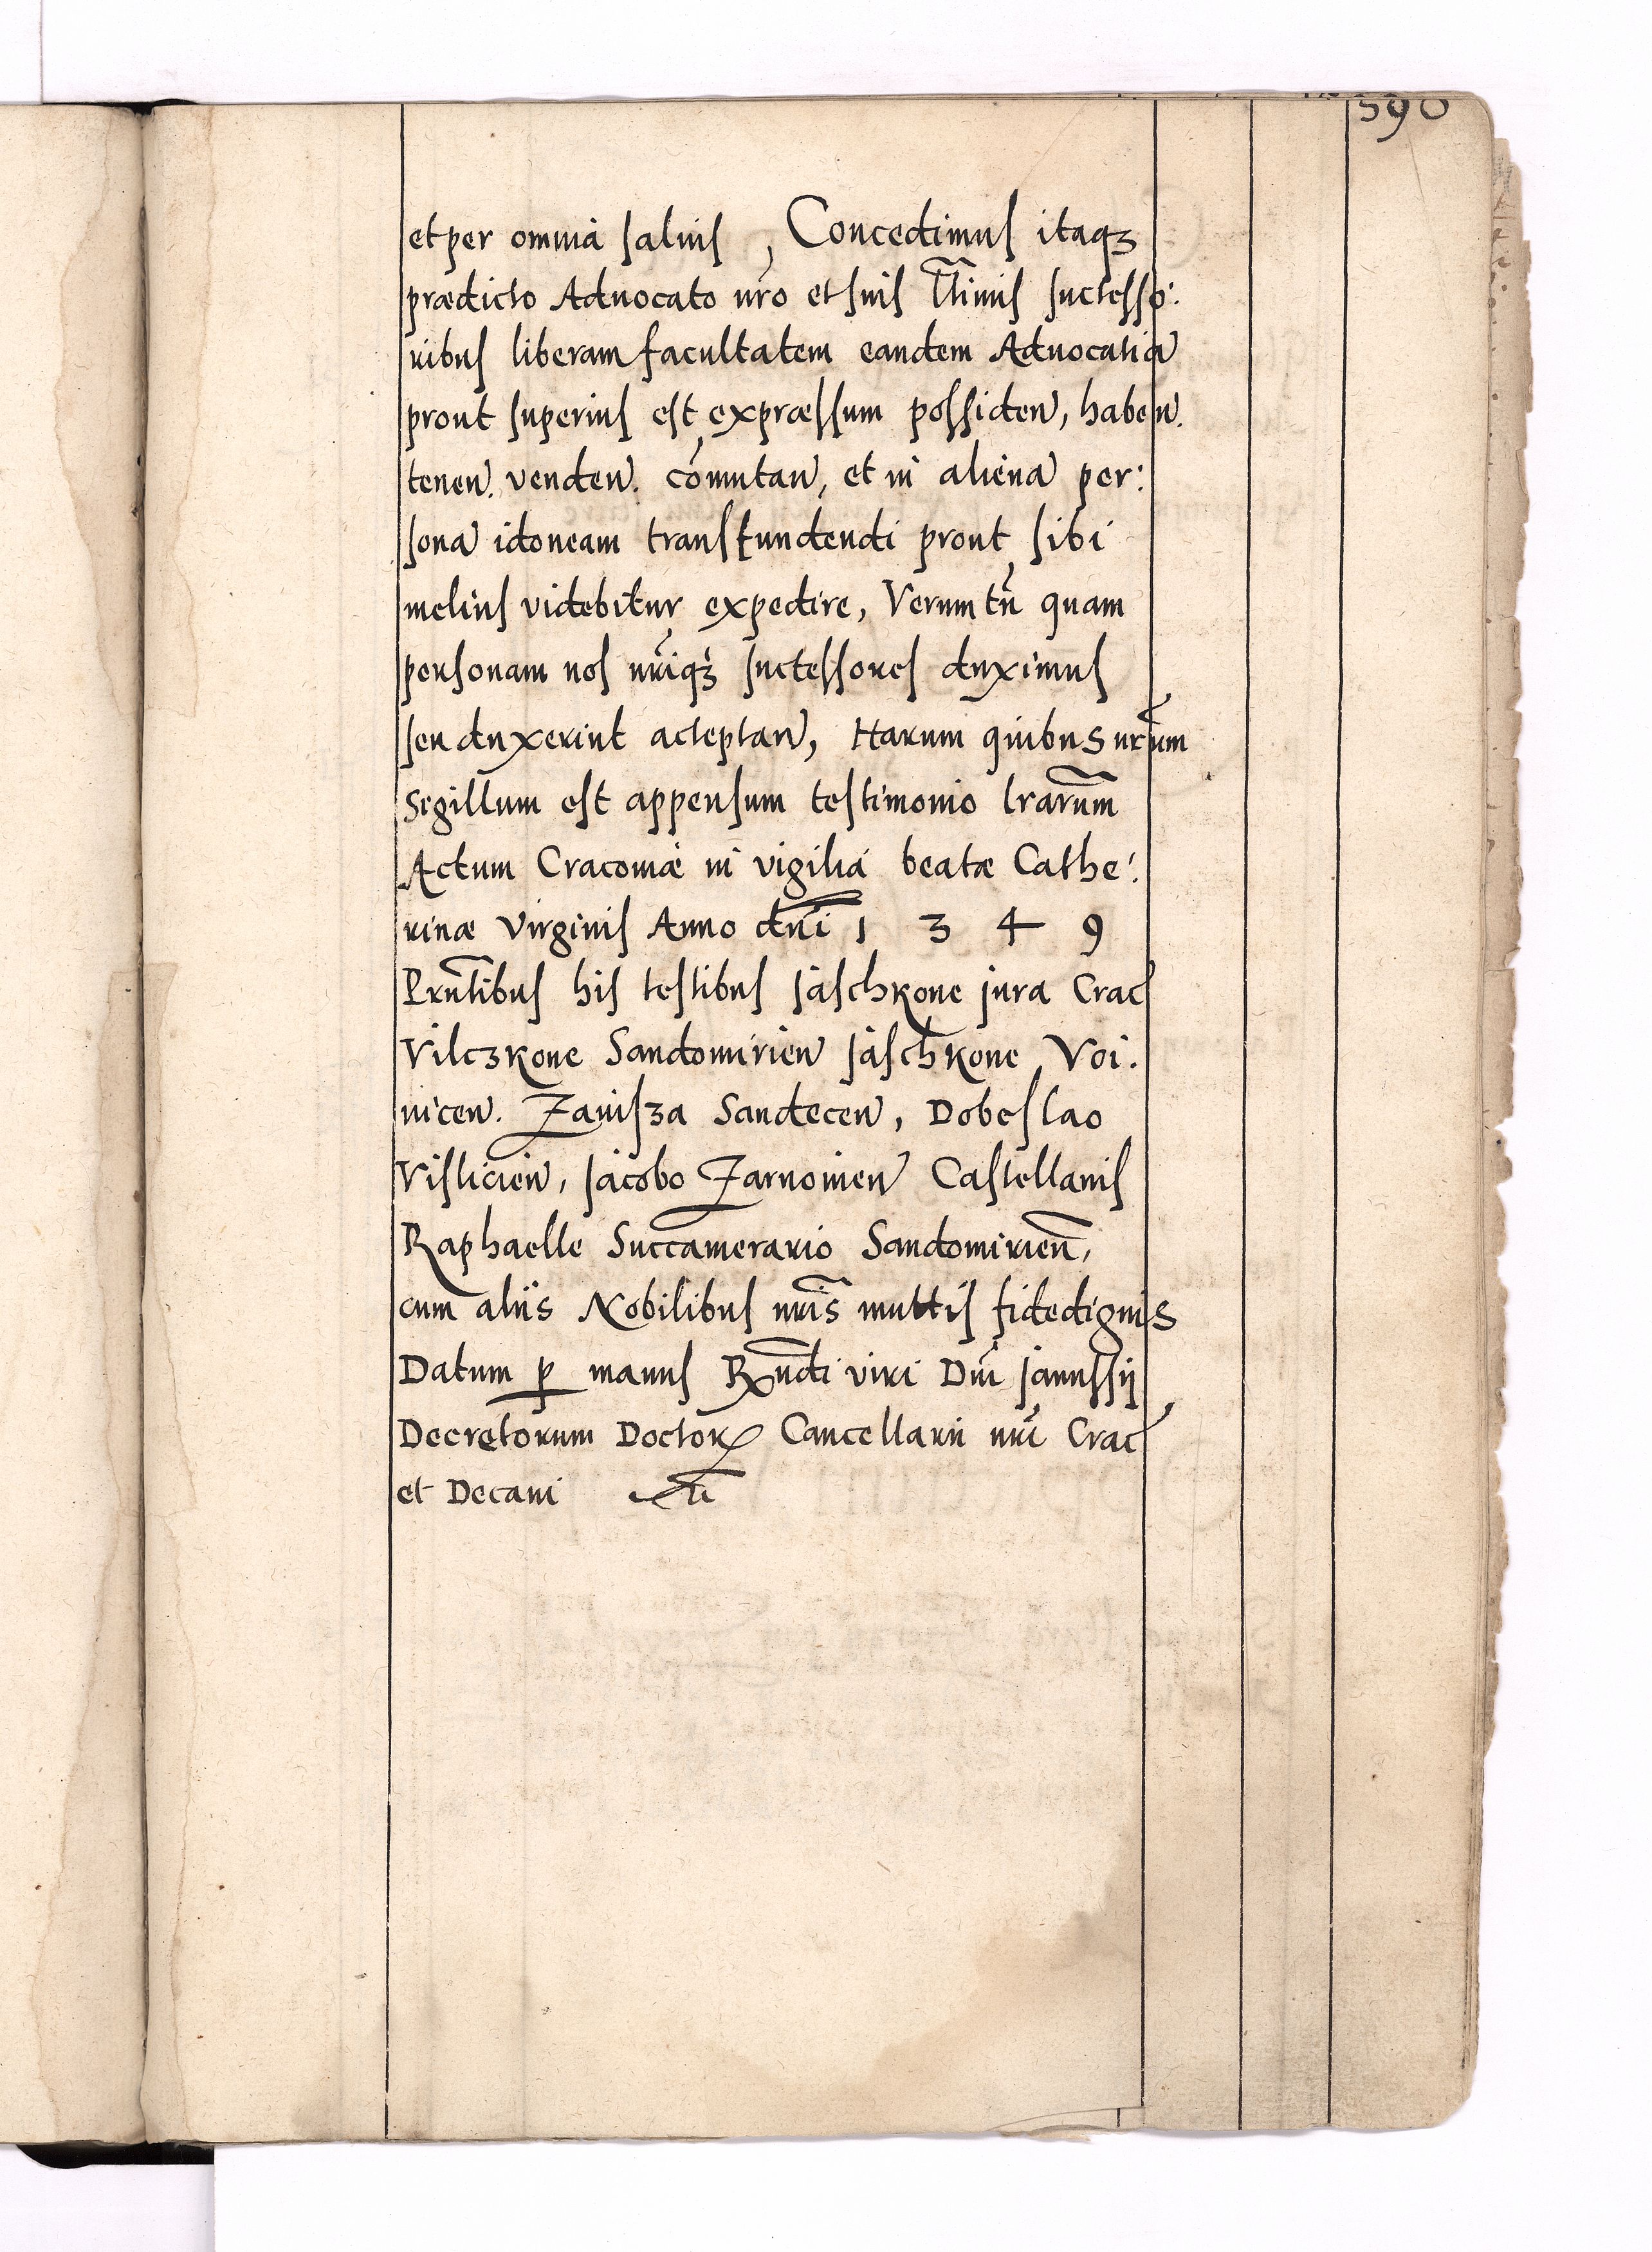 590
et per omnia salvis, Concedimus itaqꝫ
prædicto Advocato nr̃o et suis ltĩmis successo:
ribus liberam facultatem eandem Advocatiã
prout superius est expræssum possideñ, habeñ.
teneñ. vendeñ. cõmutañ, et in alienã per:
sonã idoneam transfundendi prout sibi
melius videbitur expedire, Verumtñ quam
personam nos nr̃iqꝫ successores duximus
seu duxerint acceptañ, Harum quibus nr̃um
Sigillum est appensum testimonio lr̃arum
Actum Cracoviæ in vigilia beatæ Cathe:
rinæ Virginis Anno dñi 1 3 4 9
Prñtibus his testibus Jaschkone jura Crac̃
Vilczkone Sandomirieñ Jaschkone Voi.
niceñ. Zavisza Sandeceñ, Dobeslao
Vislicieñ, Jacobo Zarnovieñ Castellanis
Raphaelle Succamerario Sandomirieñ,
cum aliis Nobilibus nr̃is multis fidedignis
Datum ꝑ manus Rx̃ndi viri Dñi Janussij
Decretorum Doctorꝝ Cancellarii nr̃i Crac̃
et Decani